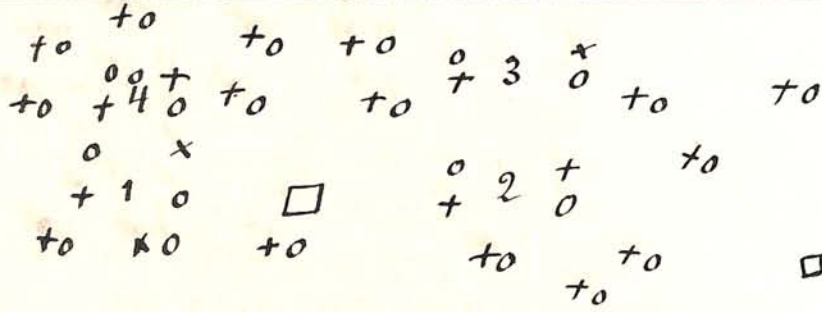 +o
+o +o +o
o x
o o + + 3 o
+o + 4 o +o +o +o +o
o x
o + +o
+ 1 o + 2 o
+o xo +o
+o +o
+o